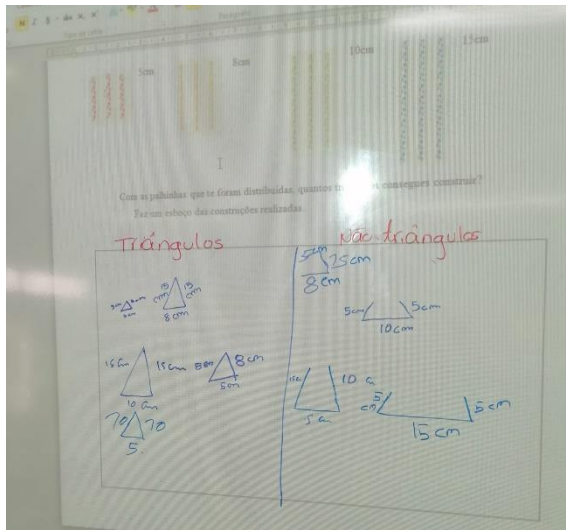 N I S
5cm
8cm
10cm
15cm
Com as palhinhas que te foram distribuídas, quantos consegues construir?
Faz um esboço das construções realizadas.
Triângulos
Não-triângulos
15 cm
15 cm
8 cm
15 cm
15 cm
10 cm
8cm
8 cm
5cm
10
10
5.
5cm
15cm
8cm
5cm
5cm
10cm
15c
10 c
5c
5
cm
5 cm
15 cm